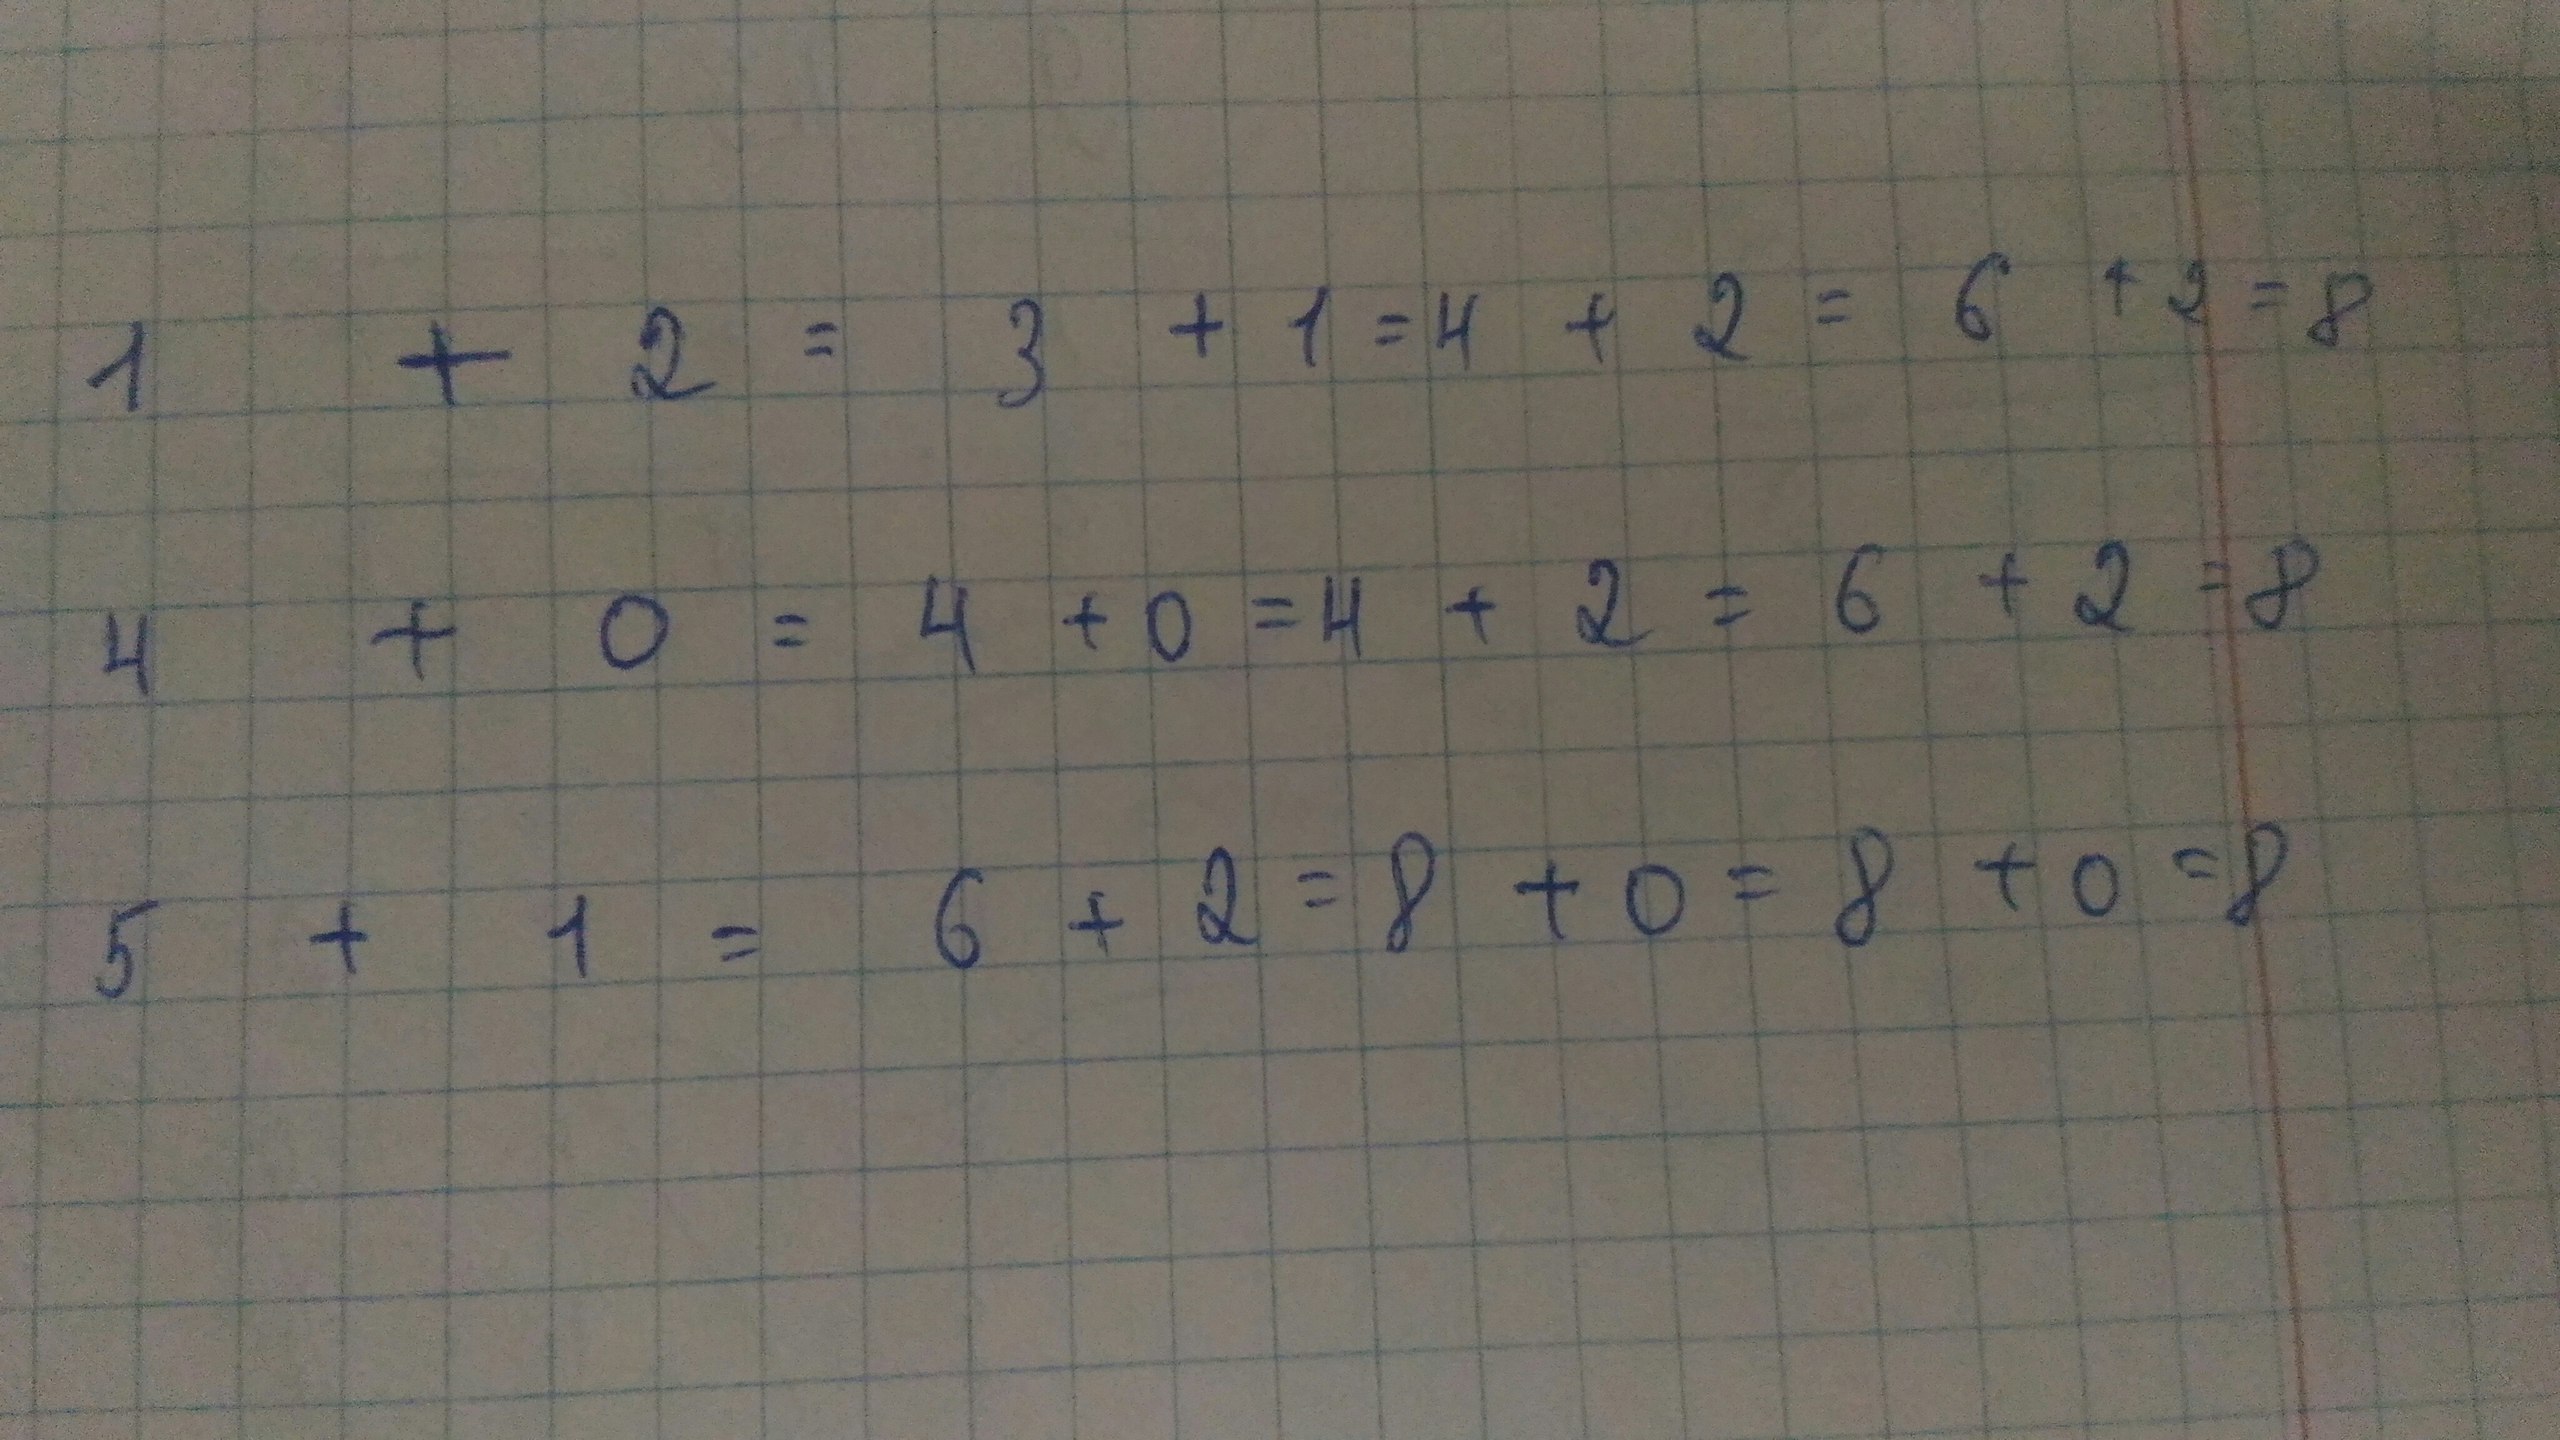 1 + 2 = 3 + 1 = 4 + 2 = 6 + 2 = 8
4 + 0 = 4 + 0 = 4 + 2 = 6 + 2 = 8
5 + 1 = 6 + 2 = 8 + 0 = 8 + 0 = 8